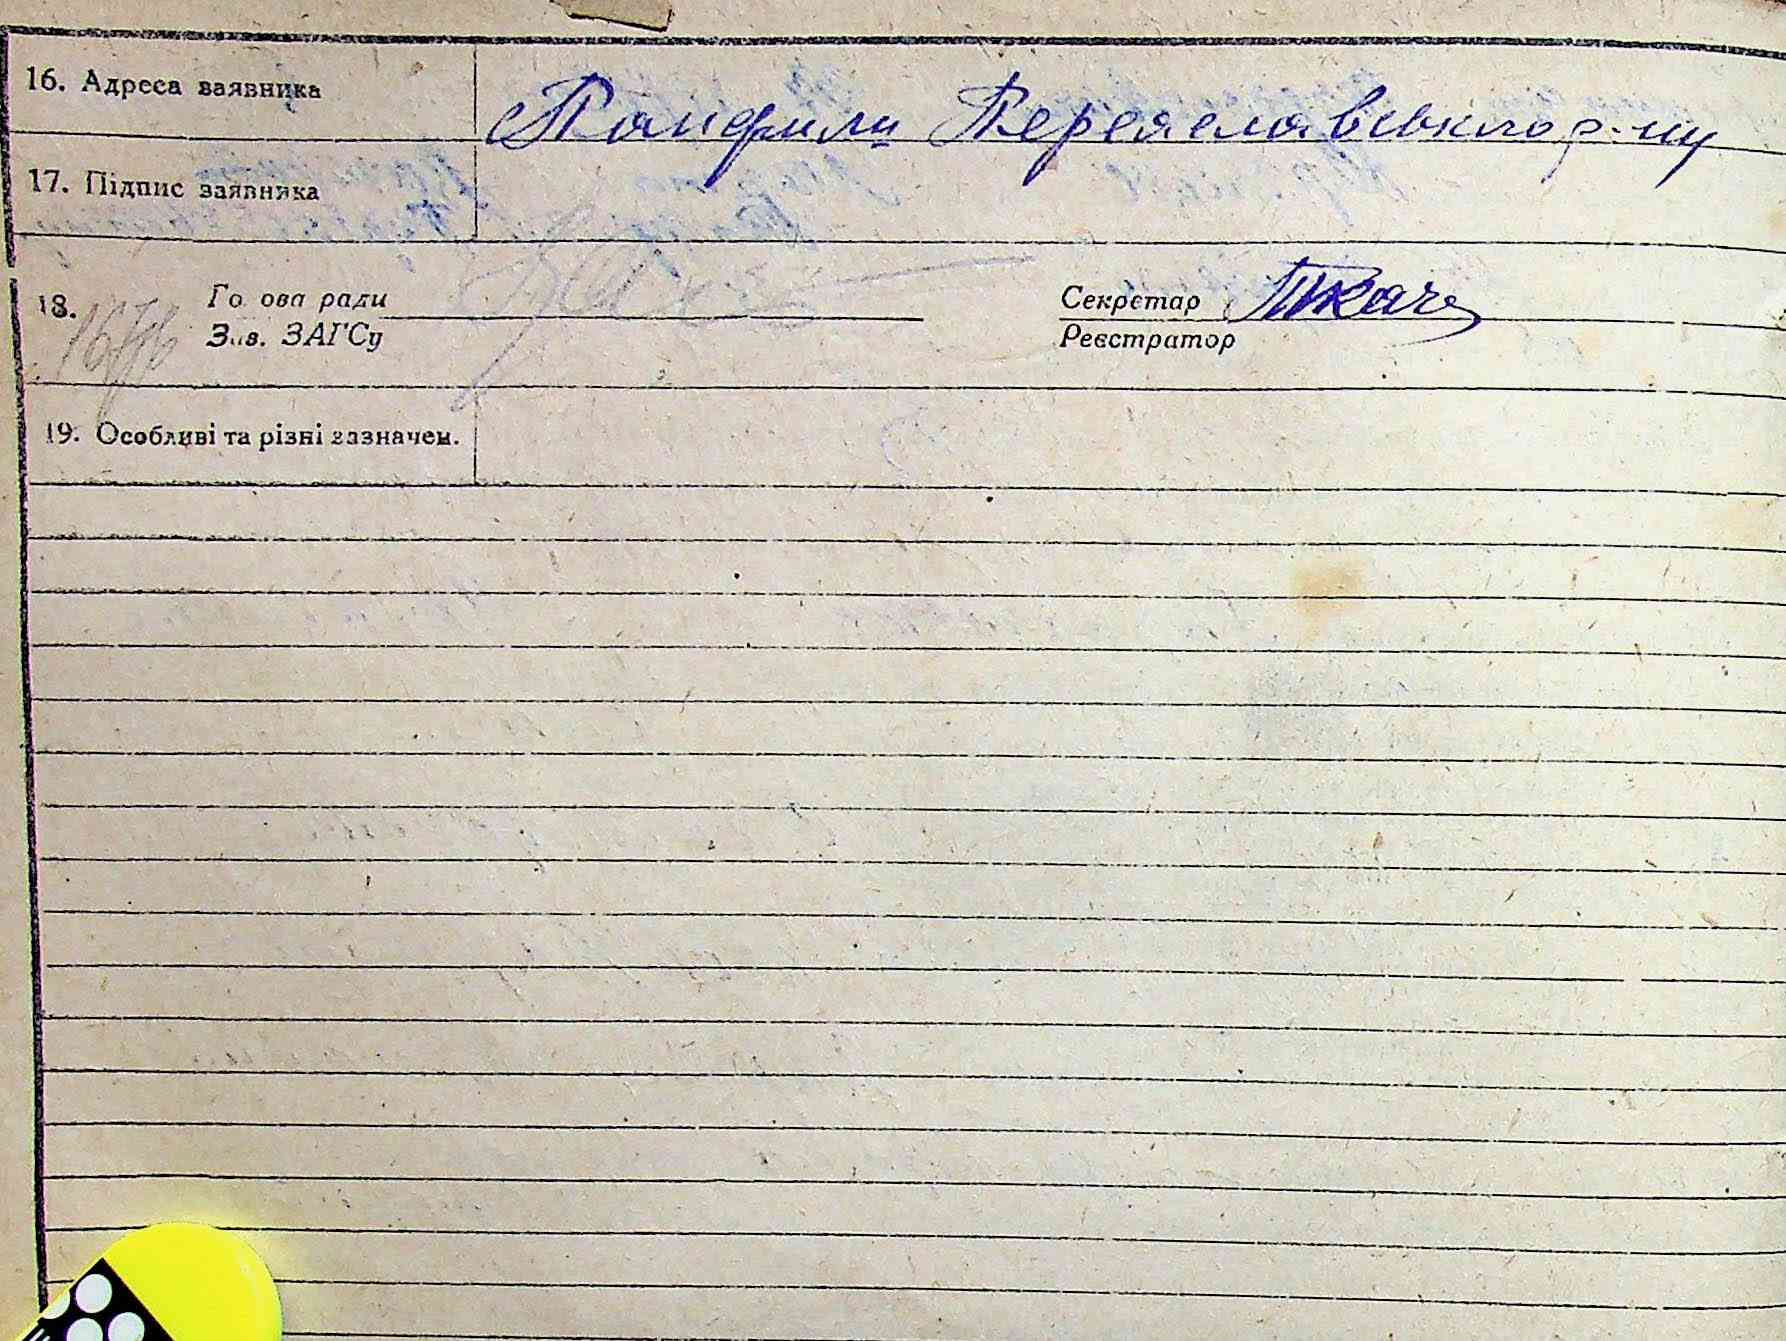 16. Адреса заявника Панфили Переяславського р-ну
17. Підпис заявника
18. Голова ради Секретар Ткач
Зав. ЗАГСу Реєстратор
19. Особливі та різні зазначен.